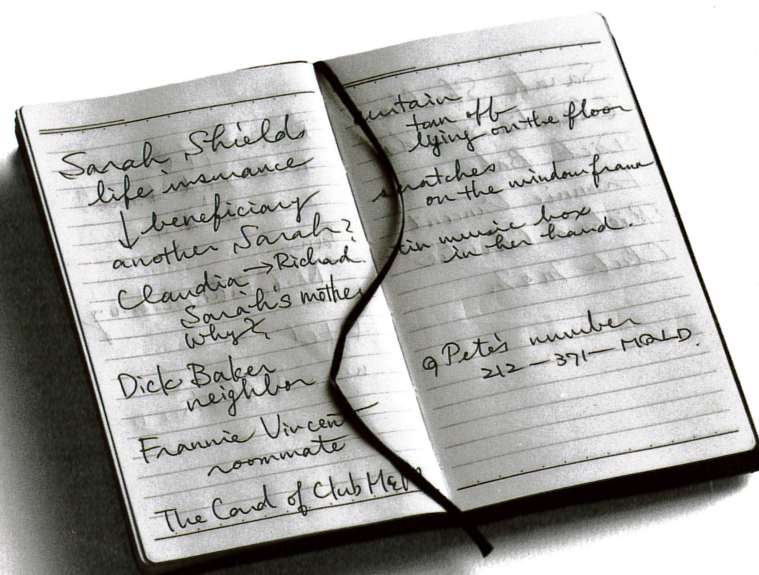 Sarah Shields
life insurance
↓ beneficiary
another Sarah?
Claudia → Richard
Sarah's mother
why?
Dick Baker
neighbor
Frannie Vincent
roommate
The Card of Club
torn off
lying on the floor
scratches
on the window frame
tin music box
in her hand.
Pete's number
212-371-